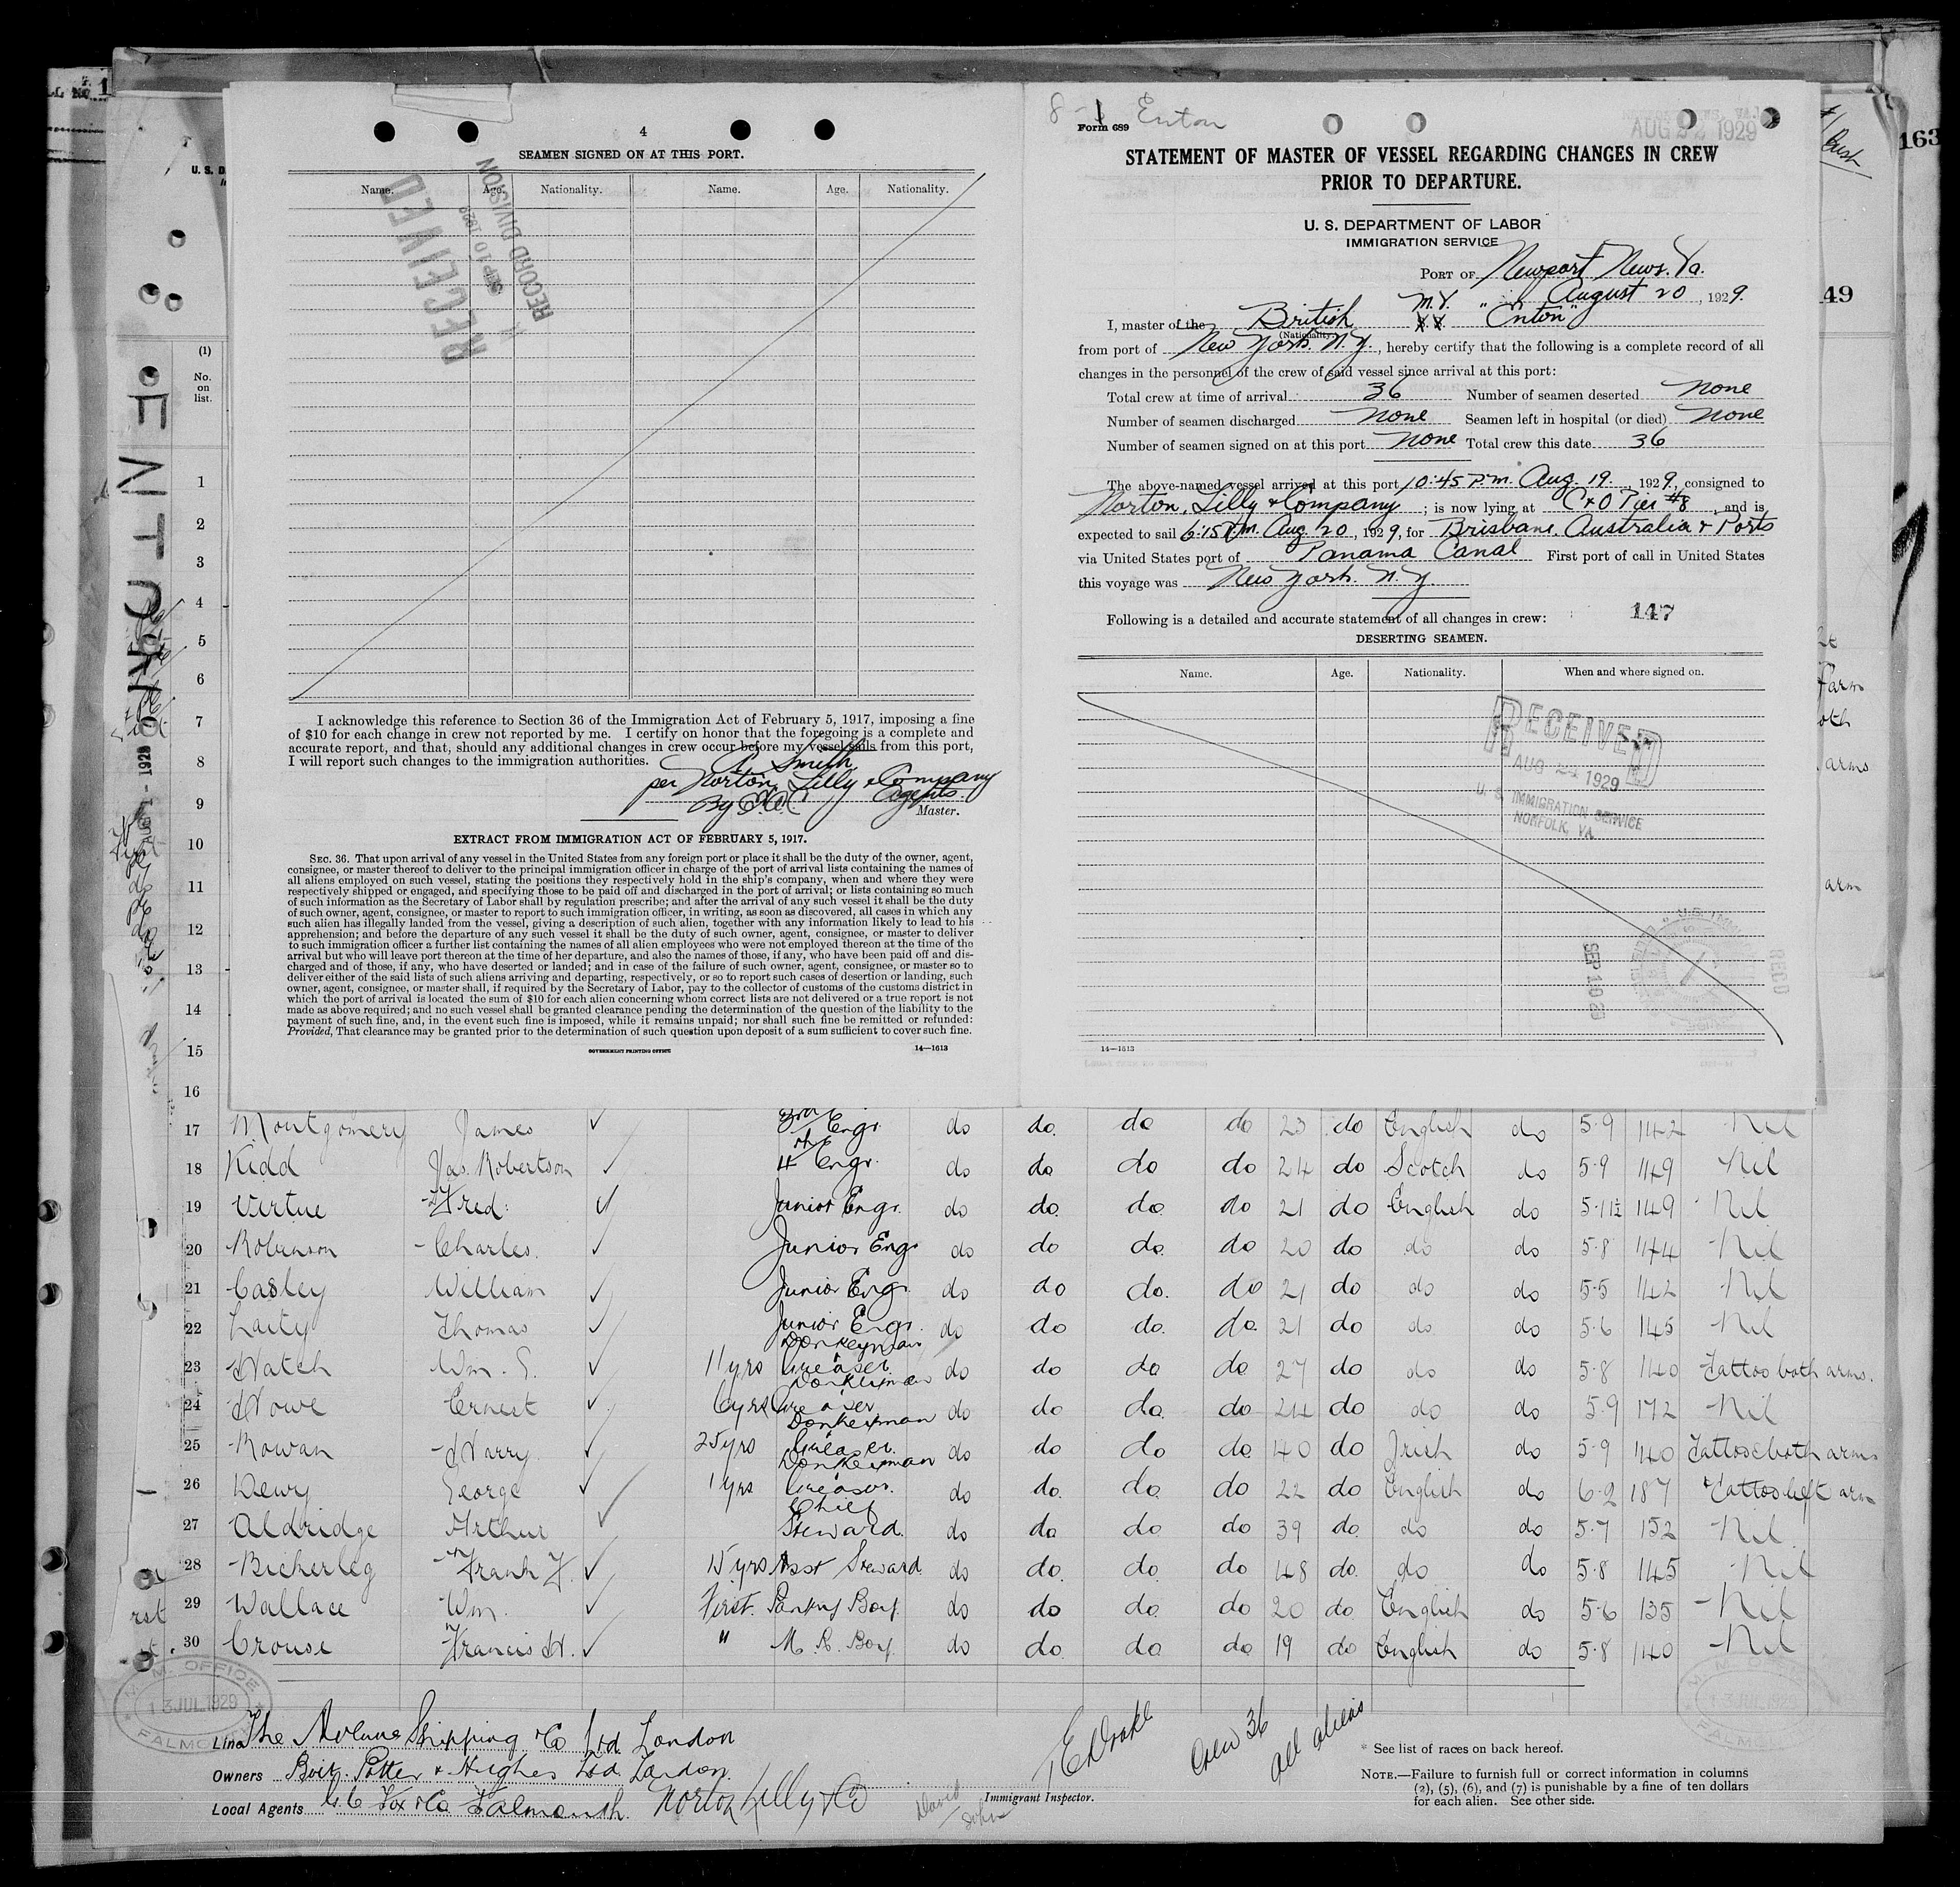 4
SEAMEN SIGNED ON AT THIS PORT.
Name. Age. Nationality. Name. Age. Nationality.
RECEIVED
SEP 10 1929
RECORD DIVISION
I acknowledge this reference to Section 36 of the Immigration Act of February 5, 1917, imposing a fine
of $10 for each change in crew not reported by me. I certify on honor that the foregoing is a complete and
accurate report, and that, should any additional changes in crew occur before my vessel sails from this port,
I will report such changes to the immigration authorities.
Smith
per Norton, Lilly & Company
By Agents.
Master.
EXTRACT FROM IMMIGRATION ACT OF FEBRUARY 5, 1917.
SEC. 36. That upon arrival of any vessel in the United States from any foreign port or place it shall be the duty of the owner, agent,
consignee, or master thereof to deliver to the principal immigration officer in charge of the port of arrival lists containing the names of
all aliens employed on such vessel, stating the positions they respectively hold in the ship's company, when and where they were
respectively shipped or engaged, and specifying those to be paid off and discharged in the port of arrival; or lists containing so much
of such information as the Secretary of Labor shall by regulation prescribe; and after the arrival of any such vessel it shall be the duty
of such owner, agent, consignee, or master to report to such immigration officer, in writing, as soon as discovered, all cases in which any
such alien has illegally landed from the vessel, giving a description of such alien, together with any information likely to lead to his
apprehension; and before the departure of any such vessel it shall be the duty of such owner, agent, consignee, or master to deliver
to such immigration officer a further list containing the names of all alien employees who were not employed thereon at the time of the
arrival but who will leave port thereon at the time of her departure, and also the names of those, if any, who have been paid off and dis-
charged and of those, if any, who have deserted or landed; and in case of the failure of such owner, agent, consignee, or master so to
deliver either of the said lists of such aliens arriving and departing, respectively, or so to report such cases of desertion or landing, such
owner, agent, consignee, or master shall, if required by the Secretary of Labor, pay to the collector of customs of the customs district in
which the port of arrival is located the sum of $10 for each alien concerning whom correct lists are not delivered or a true report is not
made as above required; and no such vessel shall be granted clearance pending the determination of the question of the liability to the
payment of such fine, and, in the event such fine is imposed, while it remains unpaid; nor shall such fine be remitted or refunded:
Provided, That clearance may be granted prior to the determination of such question upon deposit of a sum sufficient to cover such fine.
GOVERNMENT PRINTING OFFICE 14—1613
8-1 Enton
Form 689
AUG 22 1929
STATEMENT OF MASTER OF VESSEL REGARDING CHANGES IN CREW
PRIOR TO DEPARTURE.
U. S. DEPARTMENT OF LABOR
IMMIGRATION SERVICE
PORT OF Newport News. Va.
August 20, 1929.
I, master of the British M.V. "Enton"
(Nationality)
from port of New York. N.Y., hereby certify that the following is a complete record of all
changes in the personnel of the crew of said vessel since arrival at this port:
Total crew at time of arrival 36 Number of seamen deserted None
Number of seamen discharged None Seamen left in hospital (or died) None
Number of seamen signed on at this port None Total crew this date 36
The above-named vessel arrived at this port 10:45 P.m. Aug. 19., 1929, consigned to
Norton, Lilly & Company; is now lying at C & O Pier #8, and is
expected to sail 6:15 P.m. Aug 20, 1929, for Brisbane. Australia & Ports
via United States port of Panama Canal First port of call in United States
this voyage was New York. N.Y.
147
Following is a detailed and accurate statement of all changes in crew:
DESERTING SEAMEN.
Name. Age. Nationality. When and where signed on.
RECEIVED
AUG 21 1929
U. S. IMMIGRATION SERVICE
NORFOLK, VA.
SEP 10 29
14—1613
163
49
U. S. D
(1)
No.
on
list.
1
2
3
4
5
6
7
8
9
10
11
12
13
14
15
16
17 Montgomery James 3rd Engr. do do. do do 23 do English do 5·9 142 Nil
18 Kidd Jas. Robertson 4th Engr. do do do do 24 do Scotch do 5·9 149 Nil
19 Virtue Fred: Junior Engr. do do. do. do 21 do English do 5·11½ 149 Nil
20 Robinson Charles. Junior Engr do do do. do 20 do do do 5·8 144 Nil
21 Casley William Junior Engr. do do do. do 21 do do do 5·5 142 Nil
22 Laity Thomas Junior Engr. do do do. do. 21 do do do 5·6 145 Nil
23 Hatch Wm. S. 11 yrs Donkeyman Greaser. do do do do. 27 do do do 5·8 140 Tattoo both arms.
24 Howe Ernest 6 yrs Donkeyman & Greaser do do do. do 24 do do do 5·9 172 Nil
25 Rowan Harry 25 yrs Donkeyman Greaser. do do do do. 40 do Irish do 5·9 140 Tattoo both arms
26 Dewy George 1 yrs Donkeyman Greaser. do do. do. do 22 do English do 6·2 187 Tattoo left arm
27 Aldridge Arthur Chief Steward. do do do do 39 do do do 5·7 152 Nil
28 Bickerleg Frank 15 yrs Asst Steward do do. do. do 48 do. do do 5·8 145 Nil
29 Wallace Wm. First. Pantry Boy. do do do. do 20 do. English do 5·6 135 Nil
30 Crouse Francis H. " M. R. Boy. do do. do do 19 do English do 5·8 140 Nil
M. M. OFFICE
13 JUL 1929
FALMOUTH
Line The Shipping Co Ltd. London
Owners Potter & Hughes Ltd. London.
Local Agents G. C Fox & Co. Falmouth. Norton Lilly & Co
David
John
Immigrant Inspector.
Crew 36
all aliens
* See list of races on back hereof.
NOTE.—Failure to furnish full or correct information in columns
(2), (5), (6), and (7) is punishable by a fine of ten dollars
for each alien. See other side.